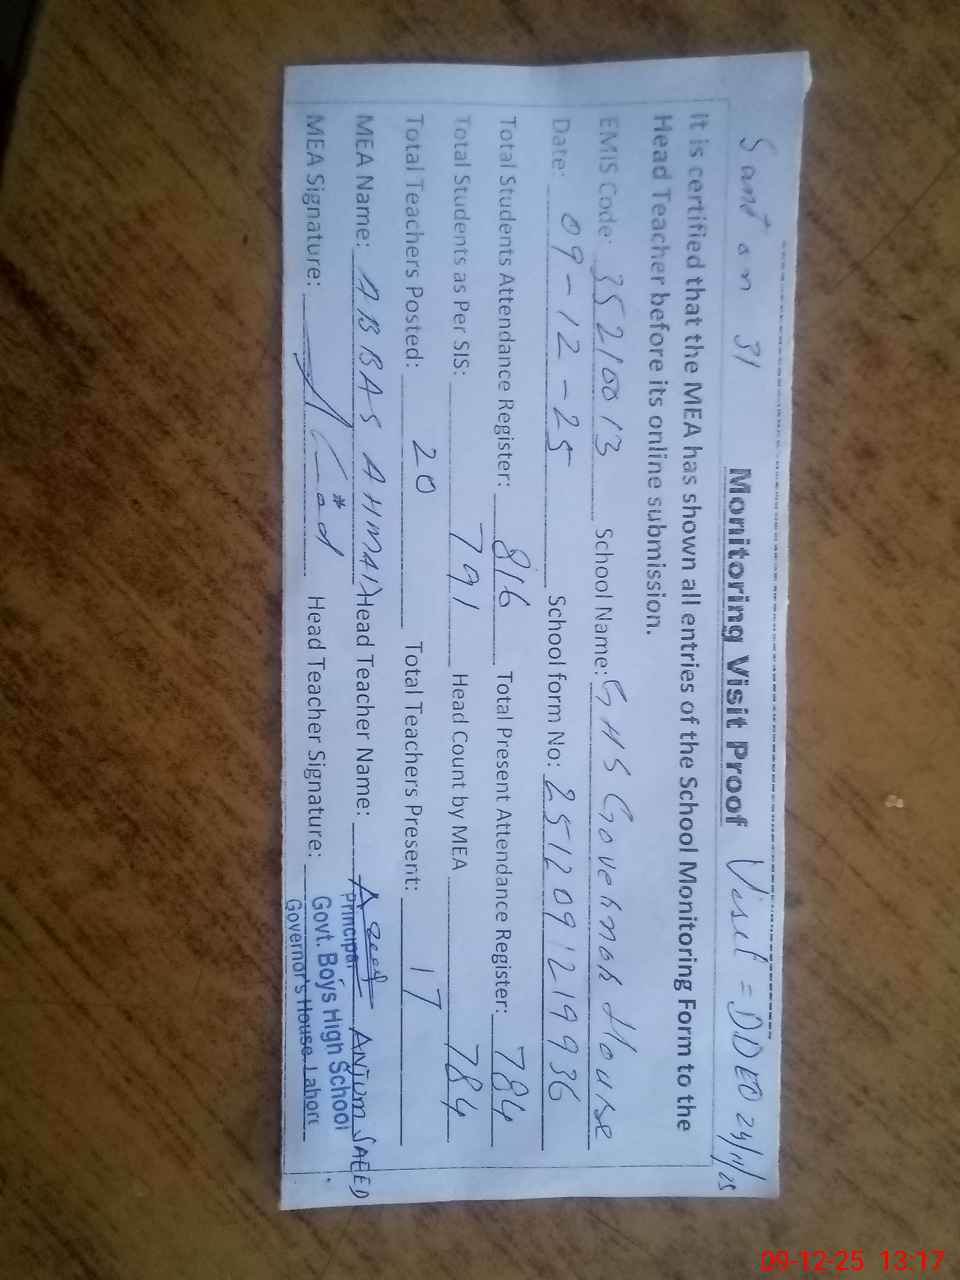 Sanct on 31
Visit = DDEO 24/11/25
Monitoring Visit Proof
It is certified that the MEA has shown all entries of the School Monitoring Form to the
Head Teacher before its online submission.
EMIS Code: 35210013 School Name: GHS Governor House
Date: 09-12-25 School form No: 2512091219936
Total Students Attendance Register: 816 Total Present Attendance Register: 784
Total Students as Per SIS: 791 Head Count by MEA 784
Total Teachers Posted: 20 Total Teachers Present: 17
MEA Name: ABBAS AHMAD Head Teacher Name: ANJUM SAEED
MEA Signature: Head Teacher Signature:
Principal
Govt. Boys High School
Governor's House Lahore
09-12-25 13:17